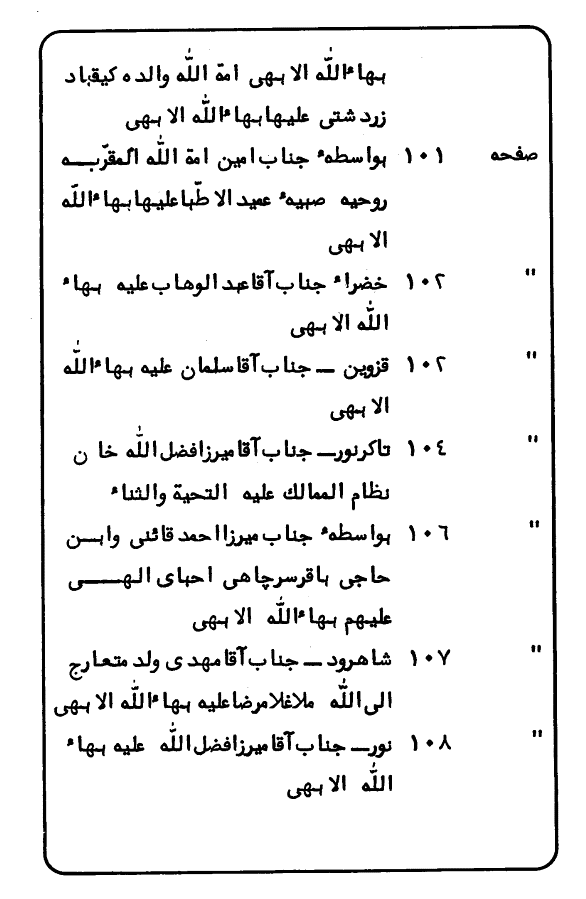 بهاءالله الابهی امة الله والده کیقباد
زردشتی علیهابهاءالله الابهی
صفحه ۱۰۱ بواسطهء جناب امین امة الله المقرّبـه
روحیه صبیهء عمید الاطّباعلیهابهاءالله
الابهی
" ۱۰۲ خضراء جناب آقاعبدالوهاب علیه بهاء
الله الابهی
" ۱۰۲ قزوین ــ جناب آقاسلمان علیه بهاءالله
الابهی
" ۱۰٤ تاکرنورــ جناب آقامیرزافضل الله خان
نظام الممالک علیه التحیة والثناء
" ۱۰٦ بواسطهء جناب میرزااحمد قائنی وابـن
حاجی باقرسرچاهی احبای الهـــی
علیهم بهاءالله الابهی
" ۱۰۷ شاهرود ــ جناب آقامهدی ولد متعارج
الی الله ملاغلامرضاعلیه بهاءالله الابهی
" ۱۰۸ نورــ جناب آقامیرزافضل الله علیه بهاء
الله الابهی